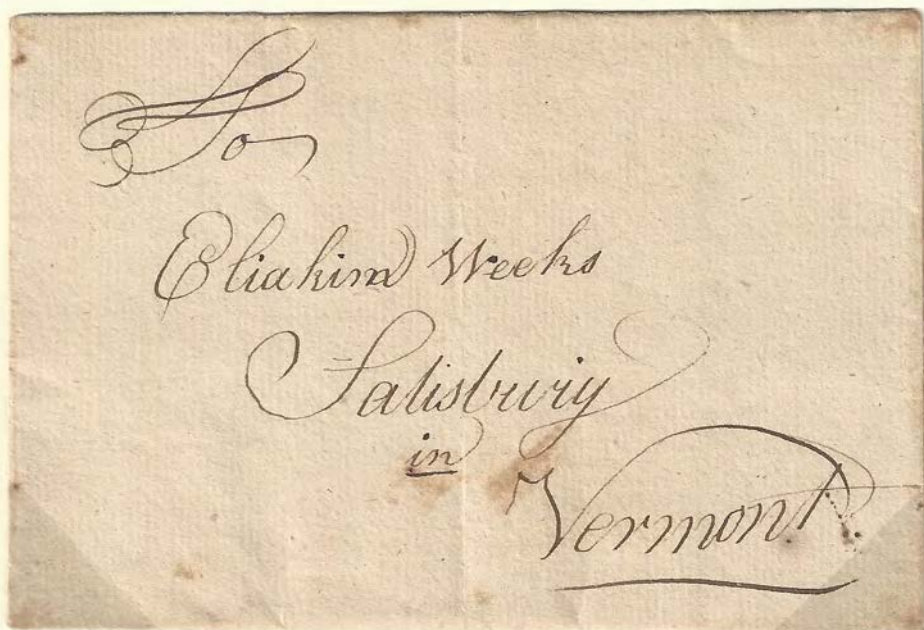 To
Eliakim Weeks
Salisbury
in
Vermont.